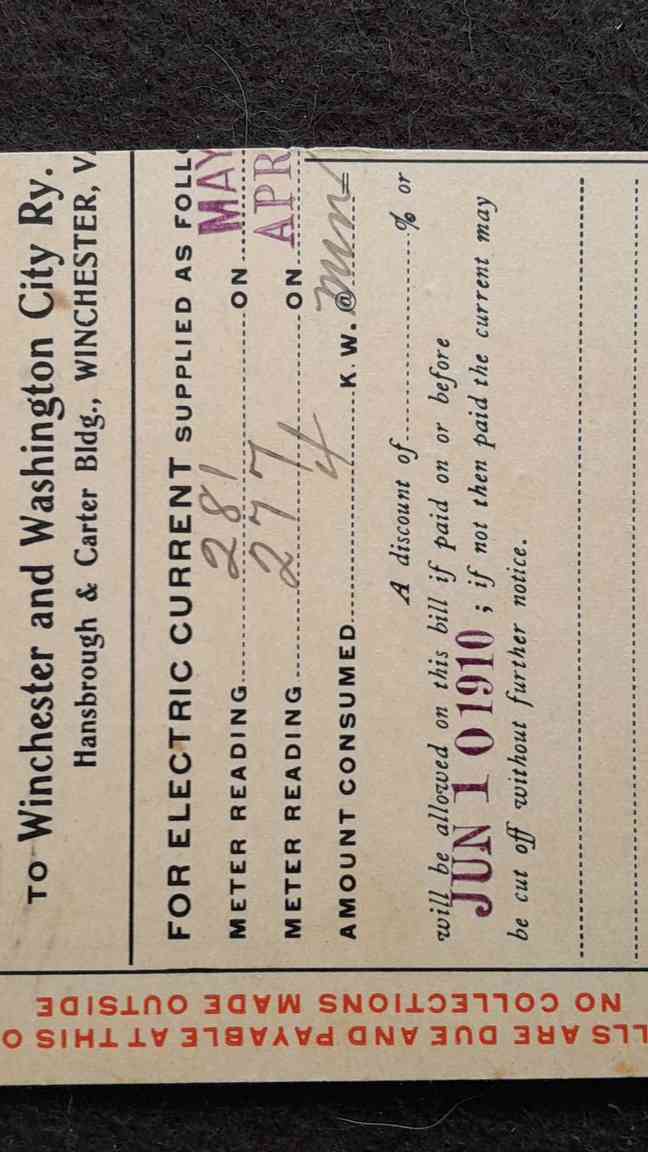 TO Winchester and Washington City Ry.
Hansbrough & Carter Bldg., WINCHESTER, V
FOR ELECTRIC CURRENT SUPPLIED AS FOLLO
METER READING 281 ON MAY
METER READING 277 ON APR
AMOUNT CONSUMED 4 K.W. @ min
A discount of % or
will be allowed on this bill if paid on or before
JUN 10 1910 ; if not then paid the current may
be cut off without further notice.
LLS ARE DUE AND PAYABLE AT THIS O
NO COLLECTIONS MADE OUTSIDE